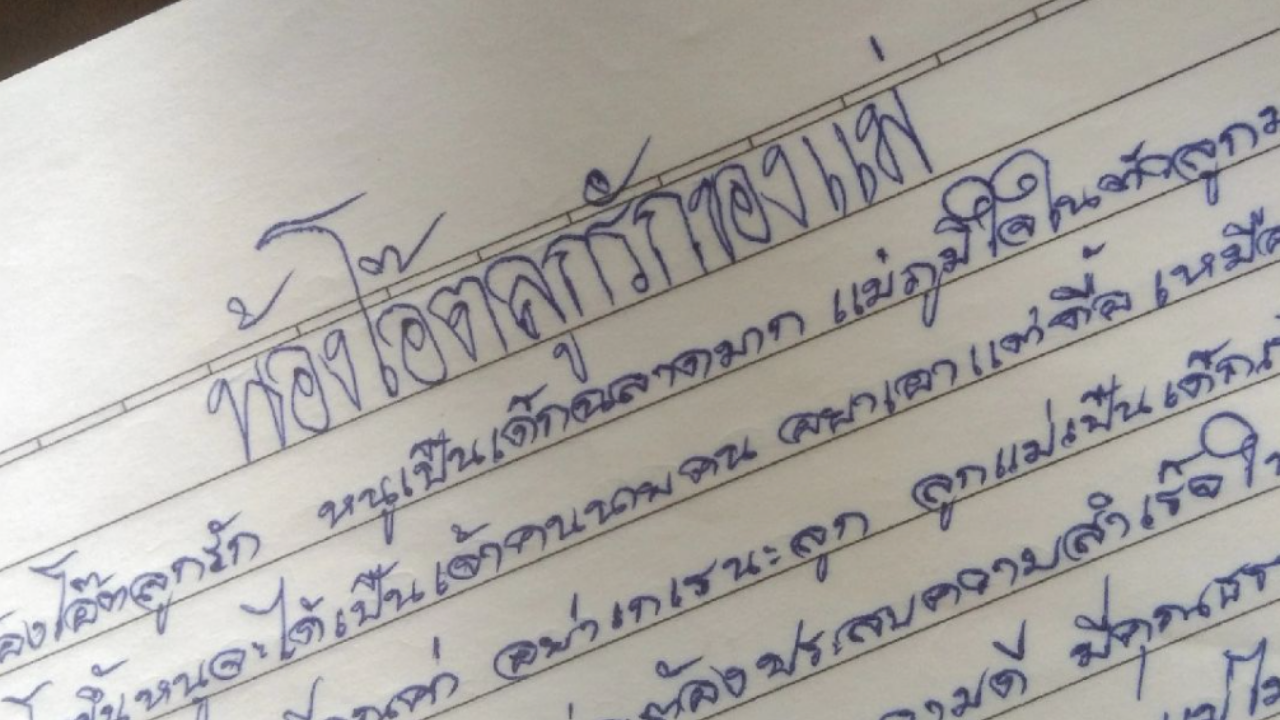 น้องโอ๊ตลูกรักของแม่
น้องโอ๊ตลูกรัก หนูเป็นเด็กฉลาดมาก แม่ภูมิใจในตัวลูกม
ขึ้นหนูจะได้เป็นเจ้าคนนายคน อย่าเอาแต่ดื้อ เหมือ
อย่าเกเรนะลูก ลูกแม่เป็นเด็ก
ต้องประสบความสำเร็จใ
ความดี มีคุณธร